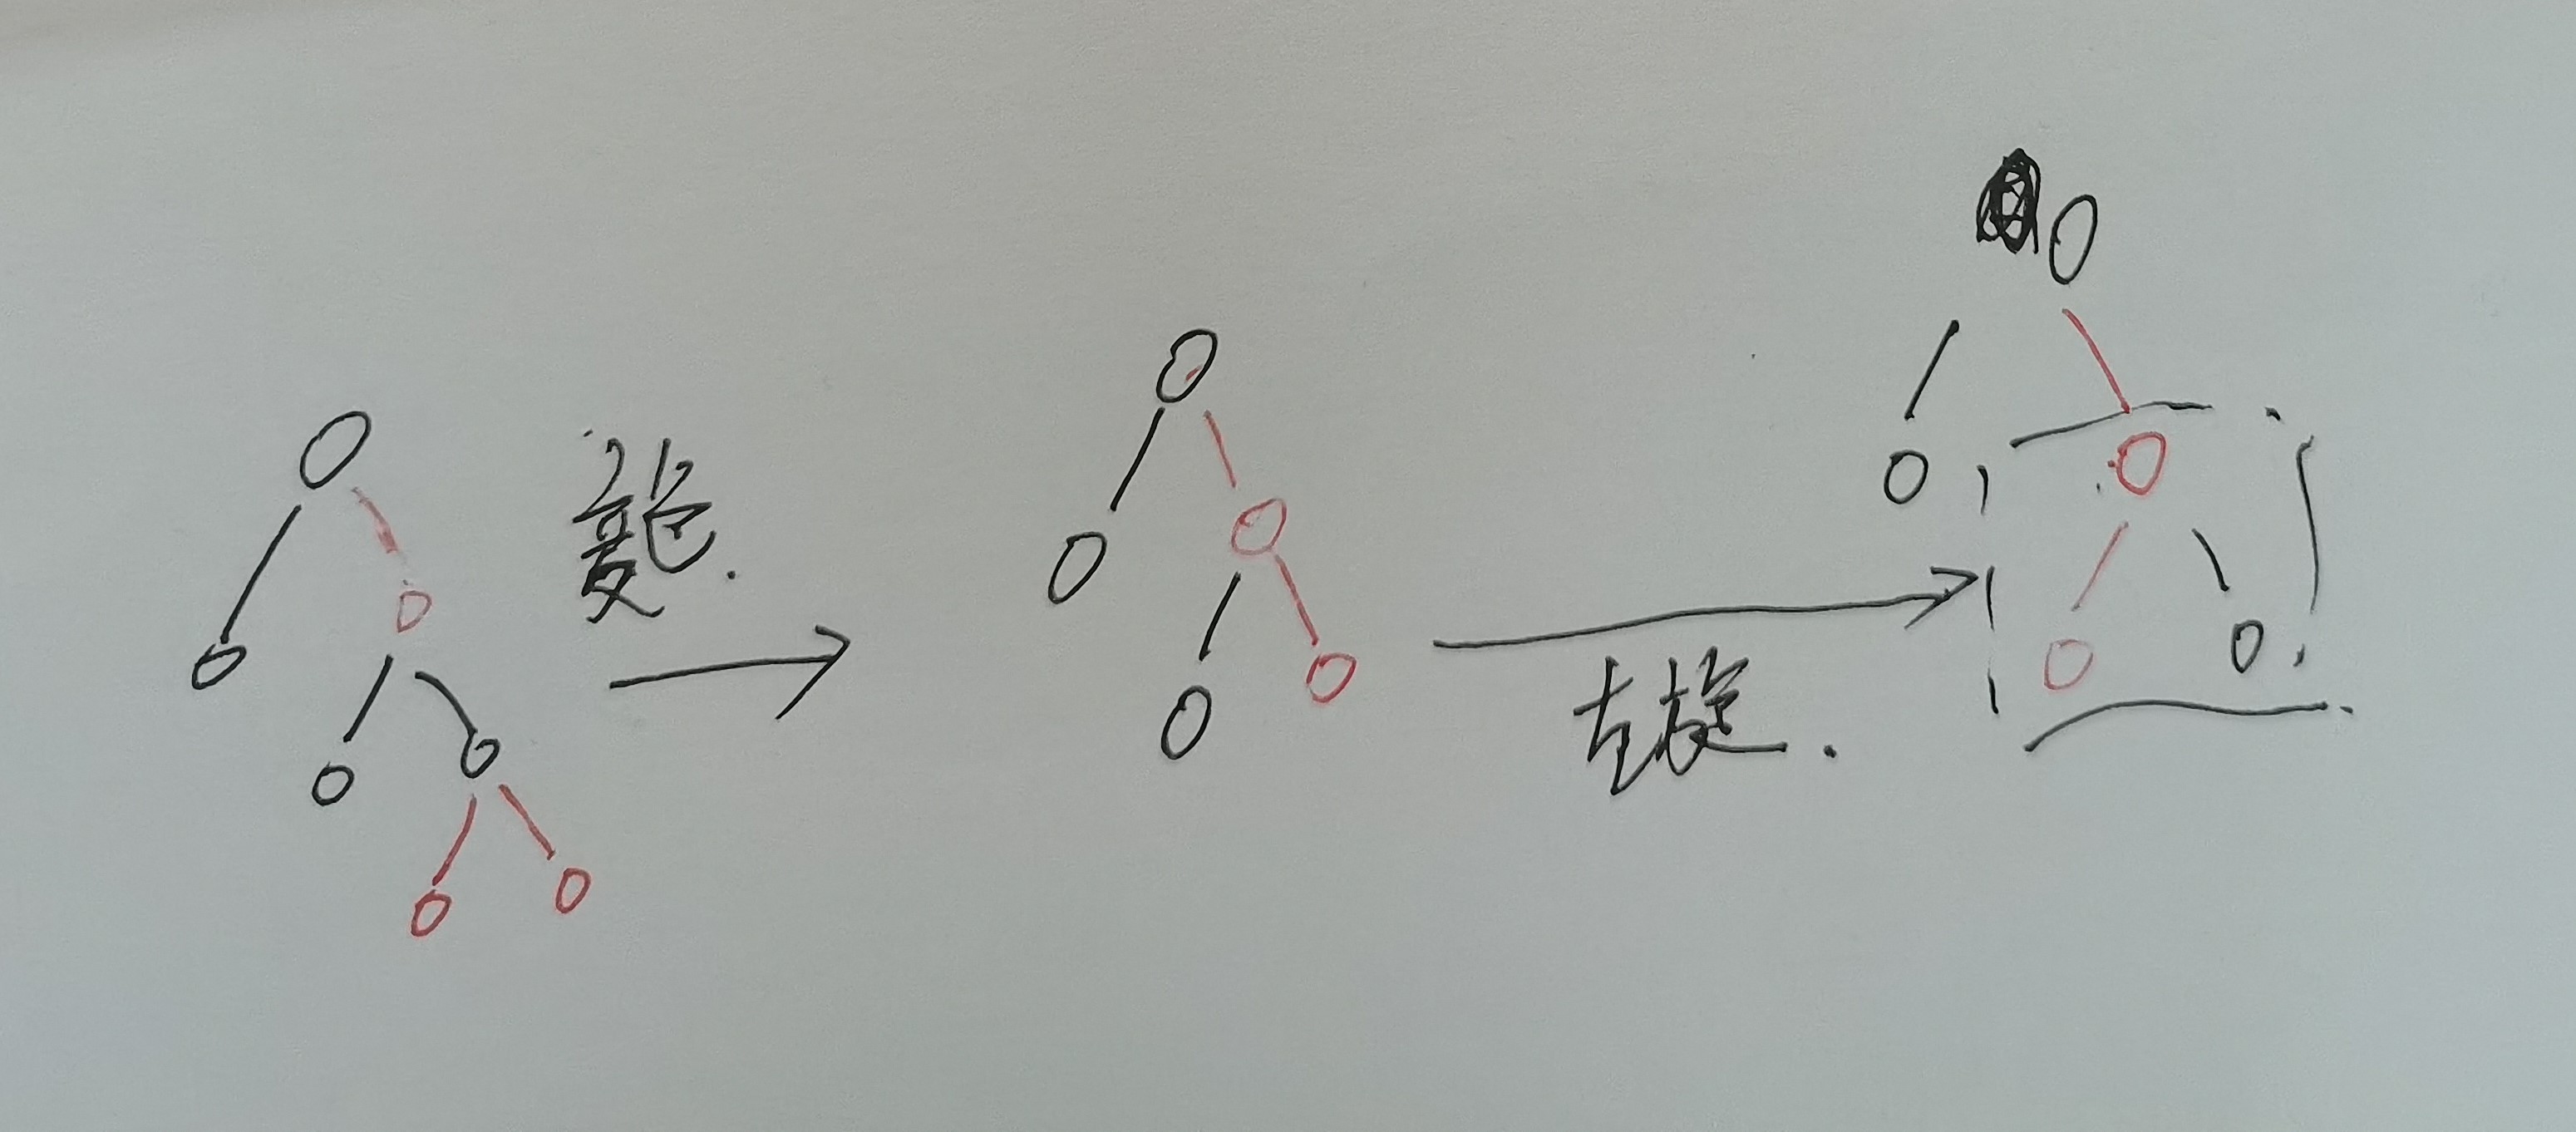 变色.
左旋.